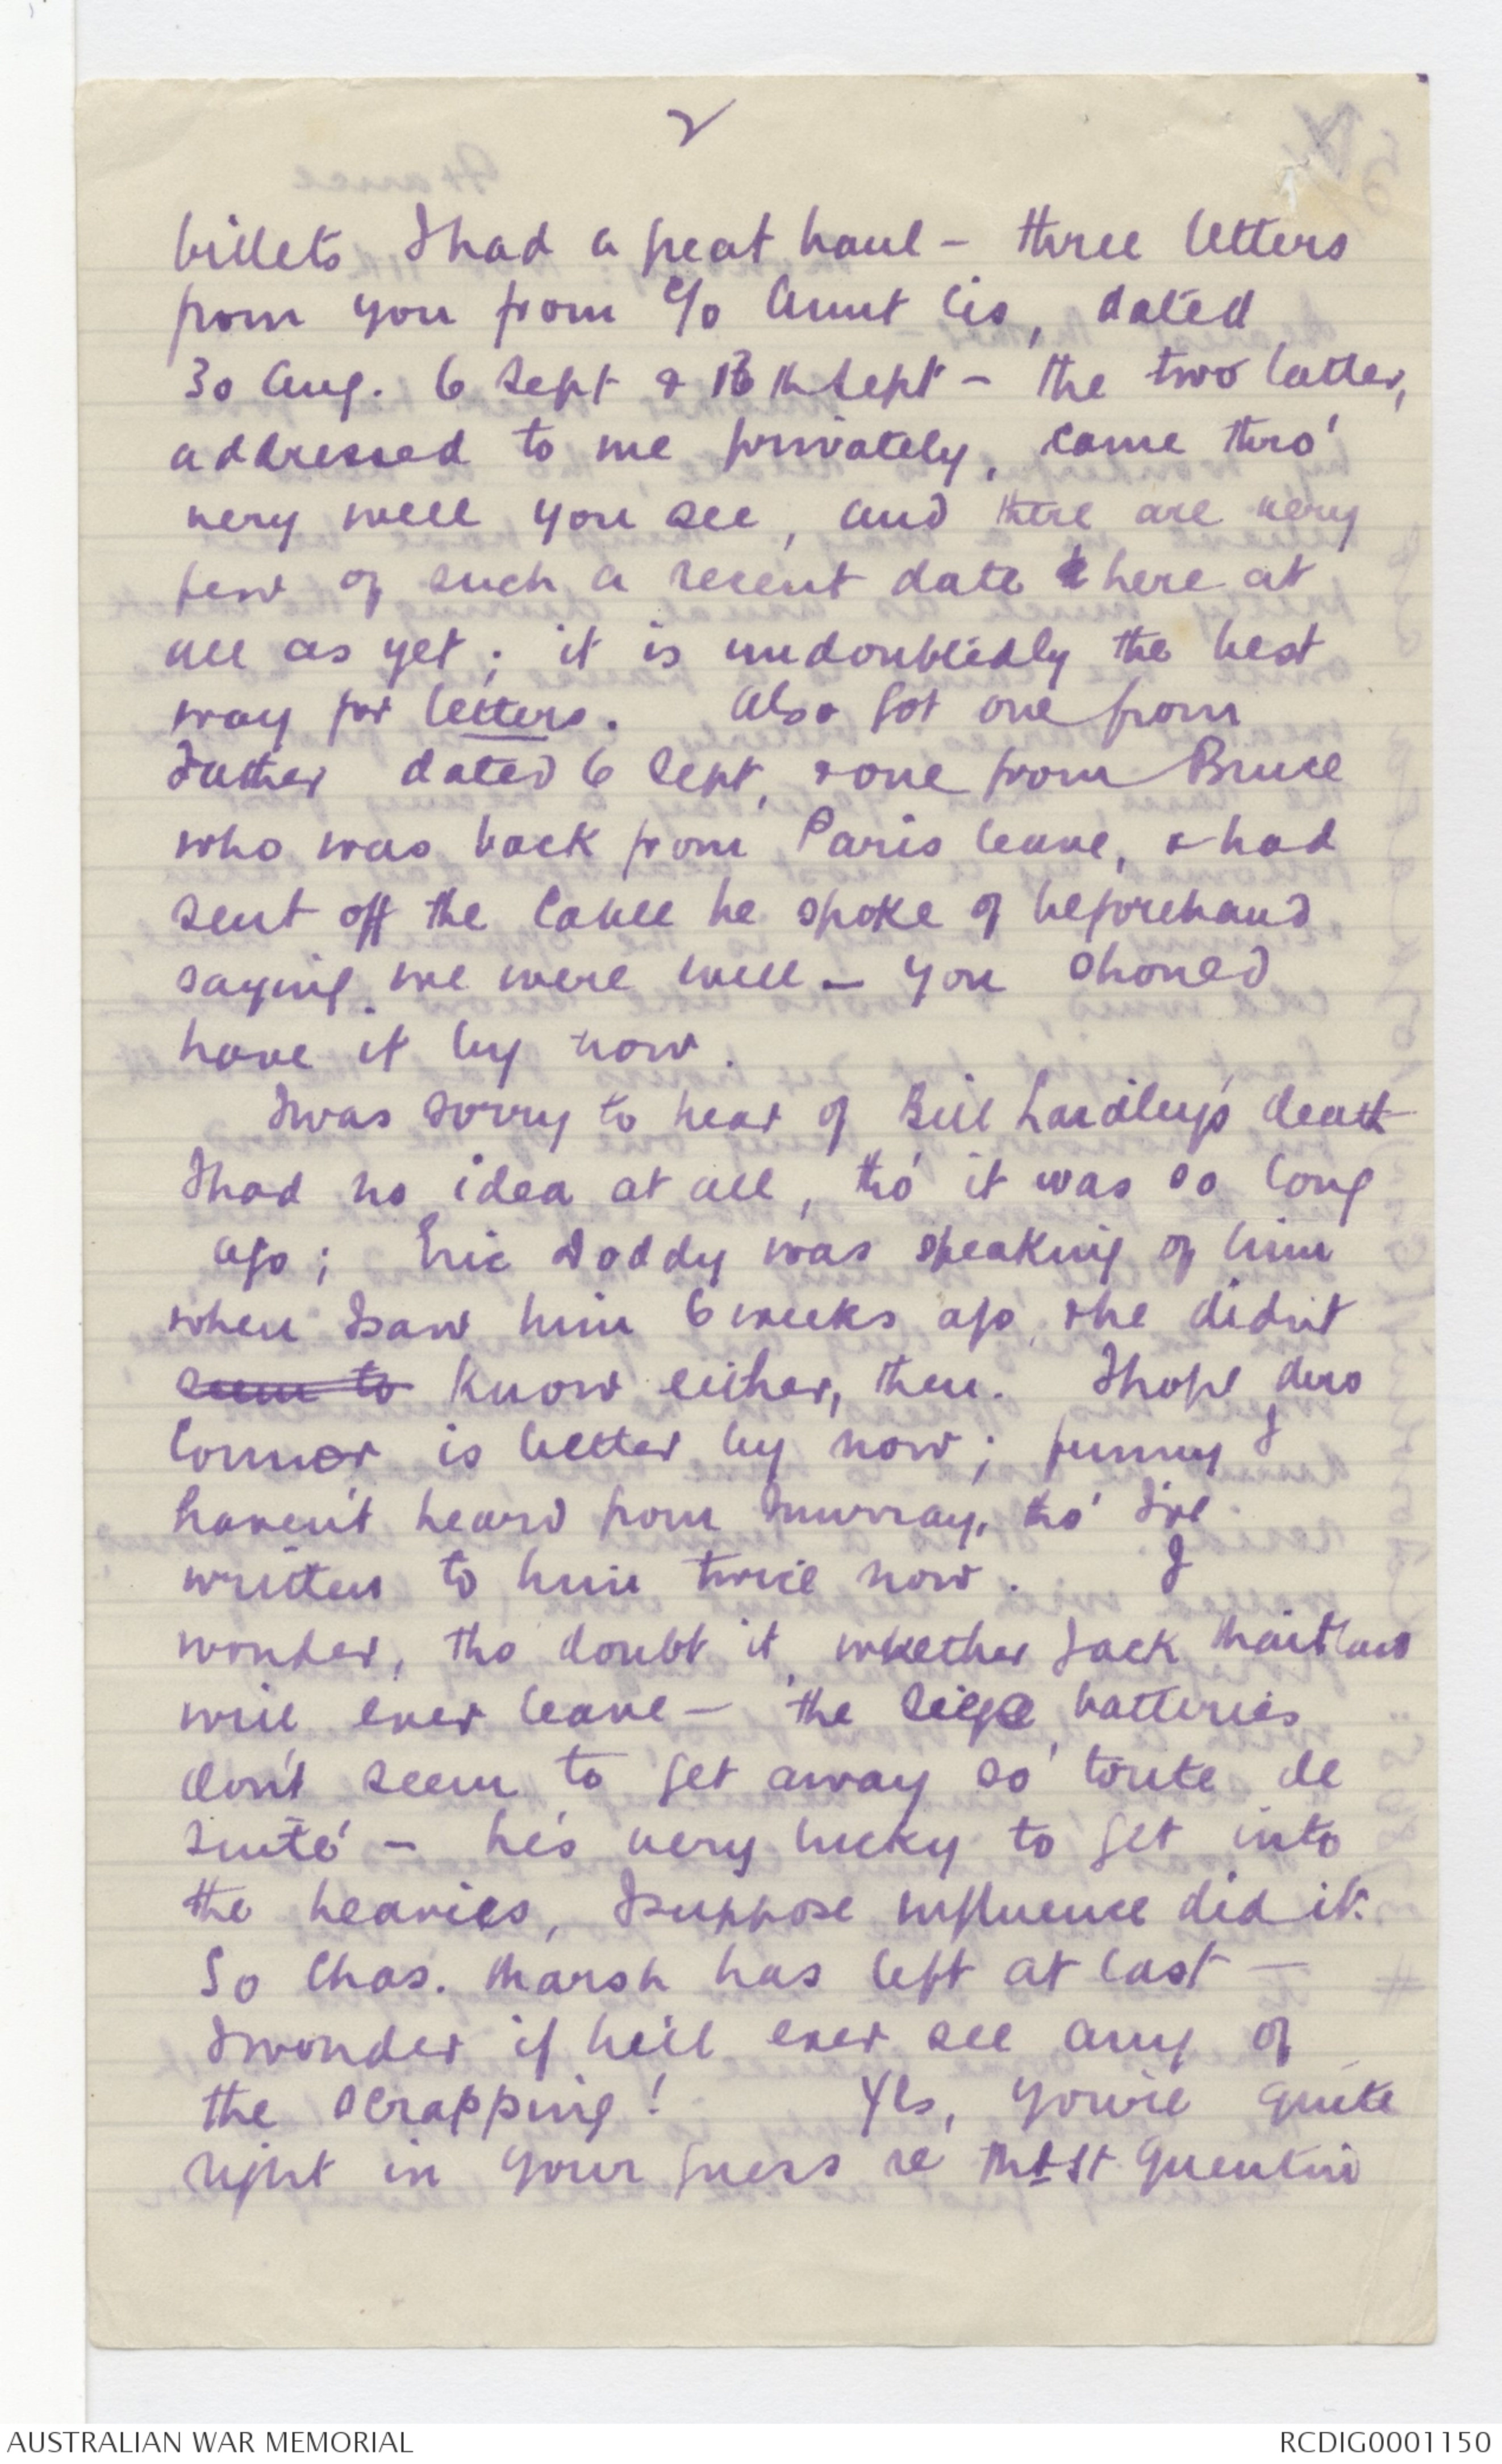 2
billets I had a great haul - three letters
from you from c/o Aunt Cis, dated
30 Aug. 6 Sept & 13th Sept - the two latter,
addressed to me privately, came thro'
very well you see, and there are very
few of such a recent date here at
all as yet; it is undoubtedly the best
way for letters. Also got one from
Father dated 6 Sept, & one from Bruce
who was back from Paris leave, & had
sent off the cable he spoke of beforehand
saying we were well - you should
have it by now.
I was sorry to hear of Bill Laidley's death
I had no idea at all, tho' it was so long
ago; Eric Doddy was speaking of him
when I saw him 6 weeks ago, & he didn't
seem to know either, then. I hope
Connor is better by now; funny I
haven't heard from Murray, tho' I've
written to him twice now. I
wonder, tho doubt it, whether Jack Maitland
will ever leave - the siege batteries
don't seem to get away so 'toute de
suite' - he's very lucky to get into
the heavies, I suppose influence did it.
So Chas. Marsh has left at last -
I wonder if he'll ever see any of
the scrapping! Yes, you're quite
right in your guess re Mt St Quentin
AUSTRALIAN WAR MEMORIAL
RCDIG0001150